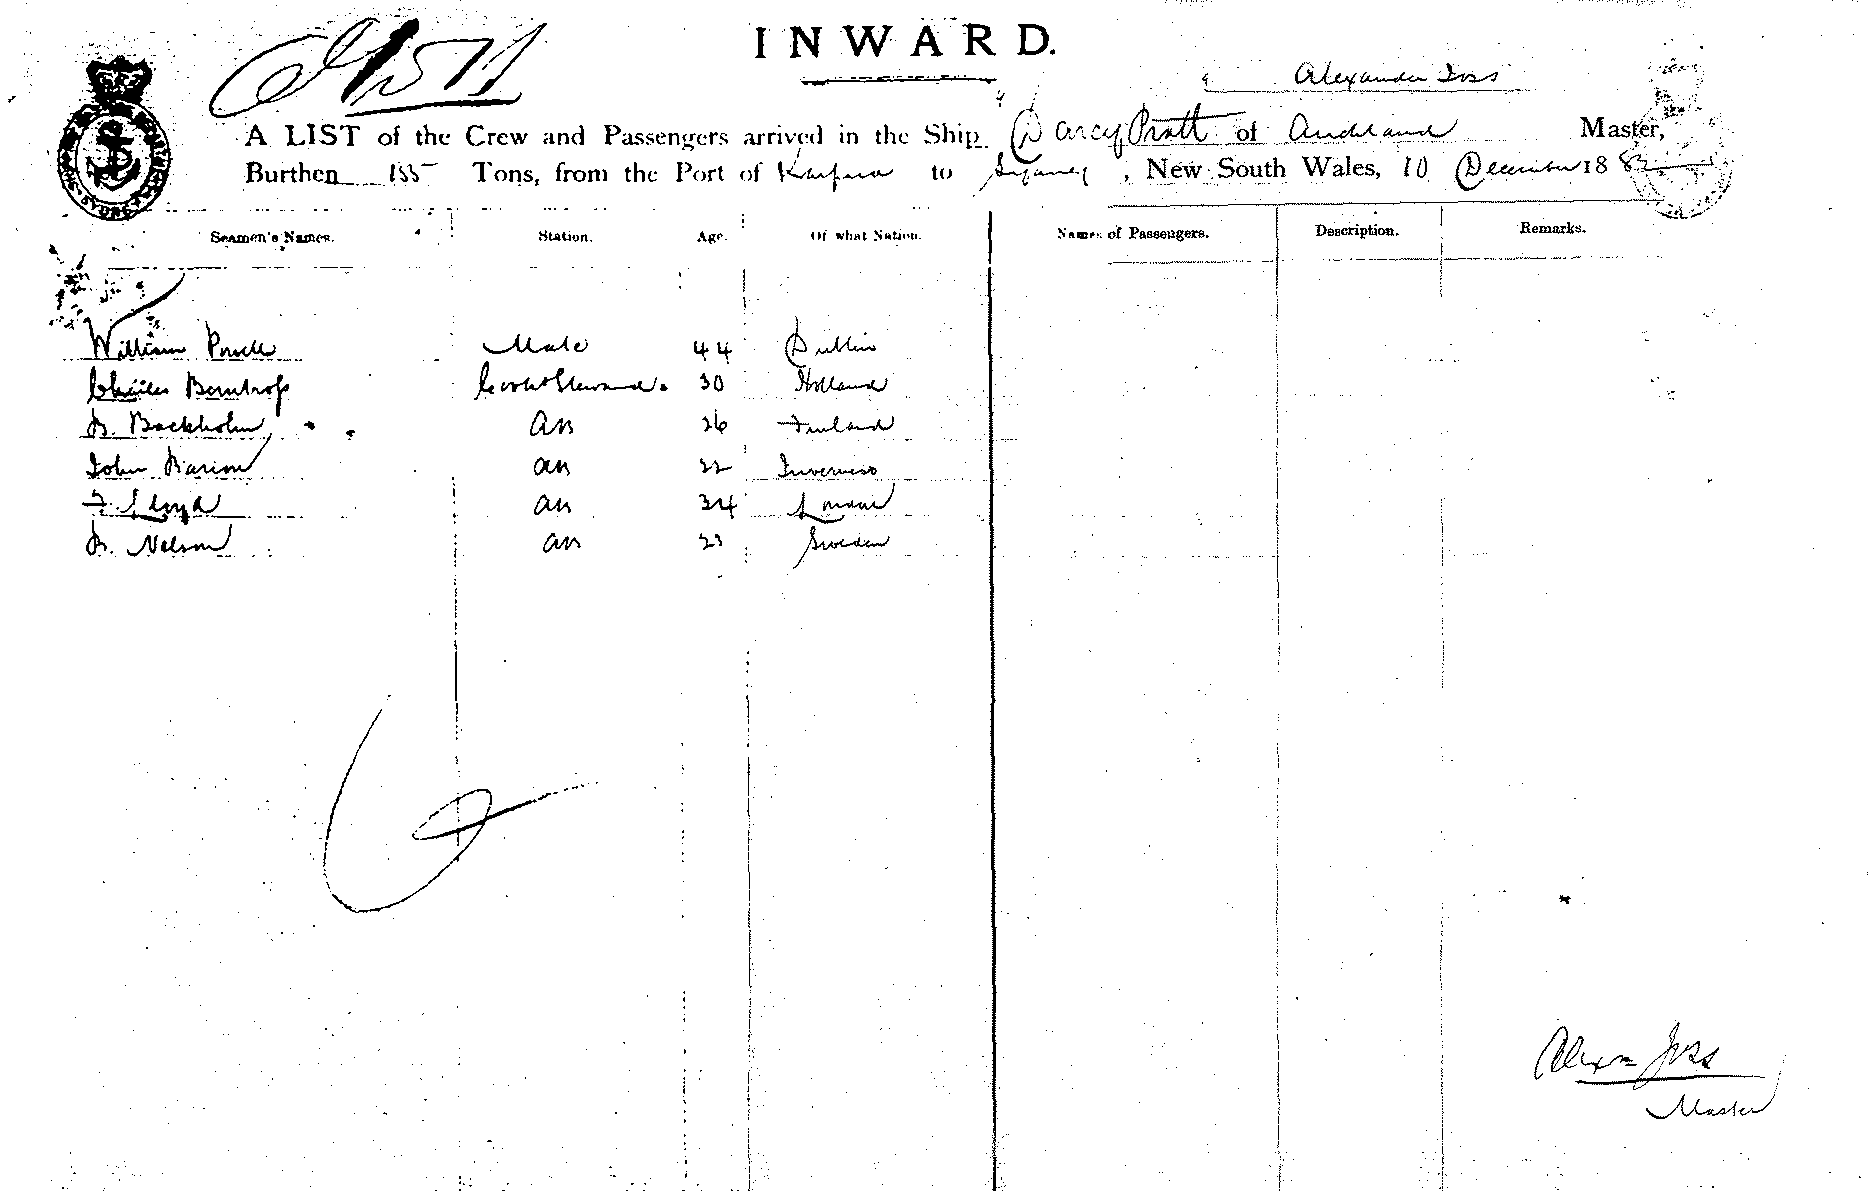 INWARD.
Alexander Joss
A LIST of the Crew and Passengers arrived in the Ship Darcy Pratt of Auckland Master,
Burthen 155 Tons, from the Port of Kaipara to Sydney, New South Wales, 10 December 188
Seamen's Names. Station. Age. Of what Nation. Names of Passengers. Description. Remarks.
William Powell Mate 44 Dublin
Charles Cook & Steward. 30 Holland
Backholm AB 26 Finland
John AB 22 Inverness
F. Lloyd AB 34 London
Nelson AB 23 Sweden
Alexr Joss
Master